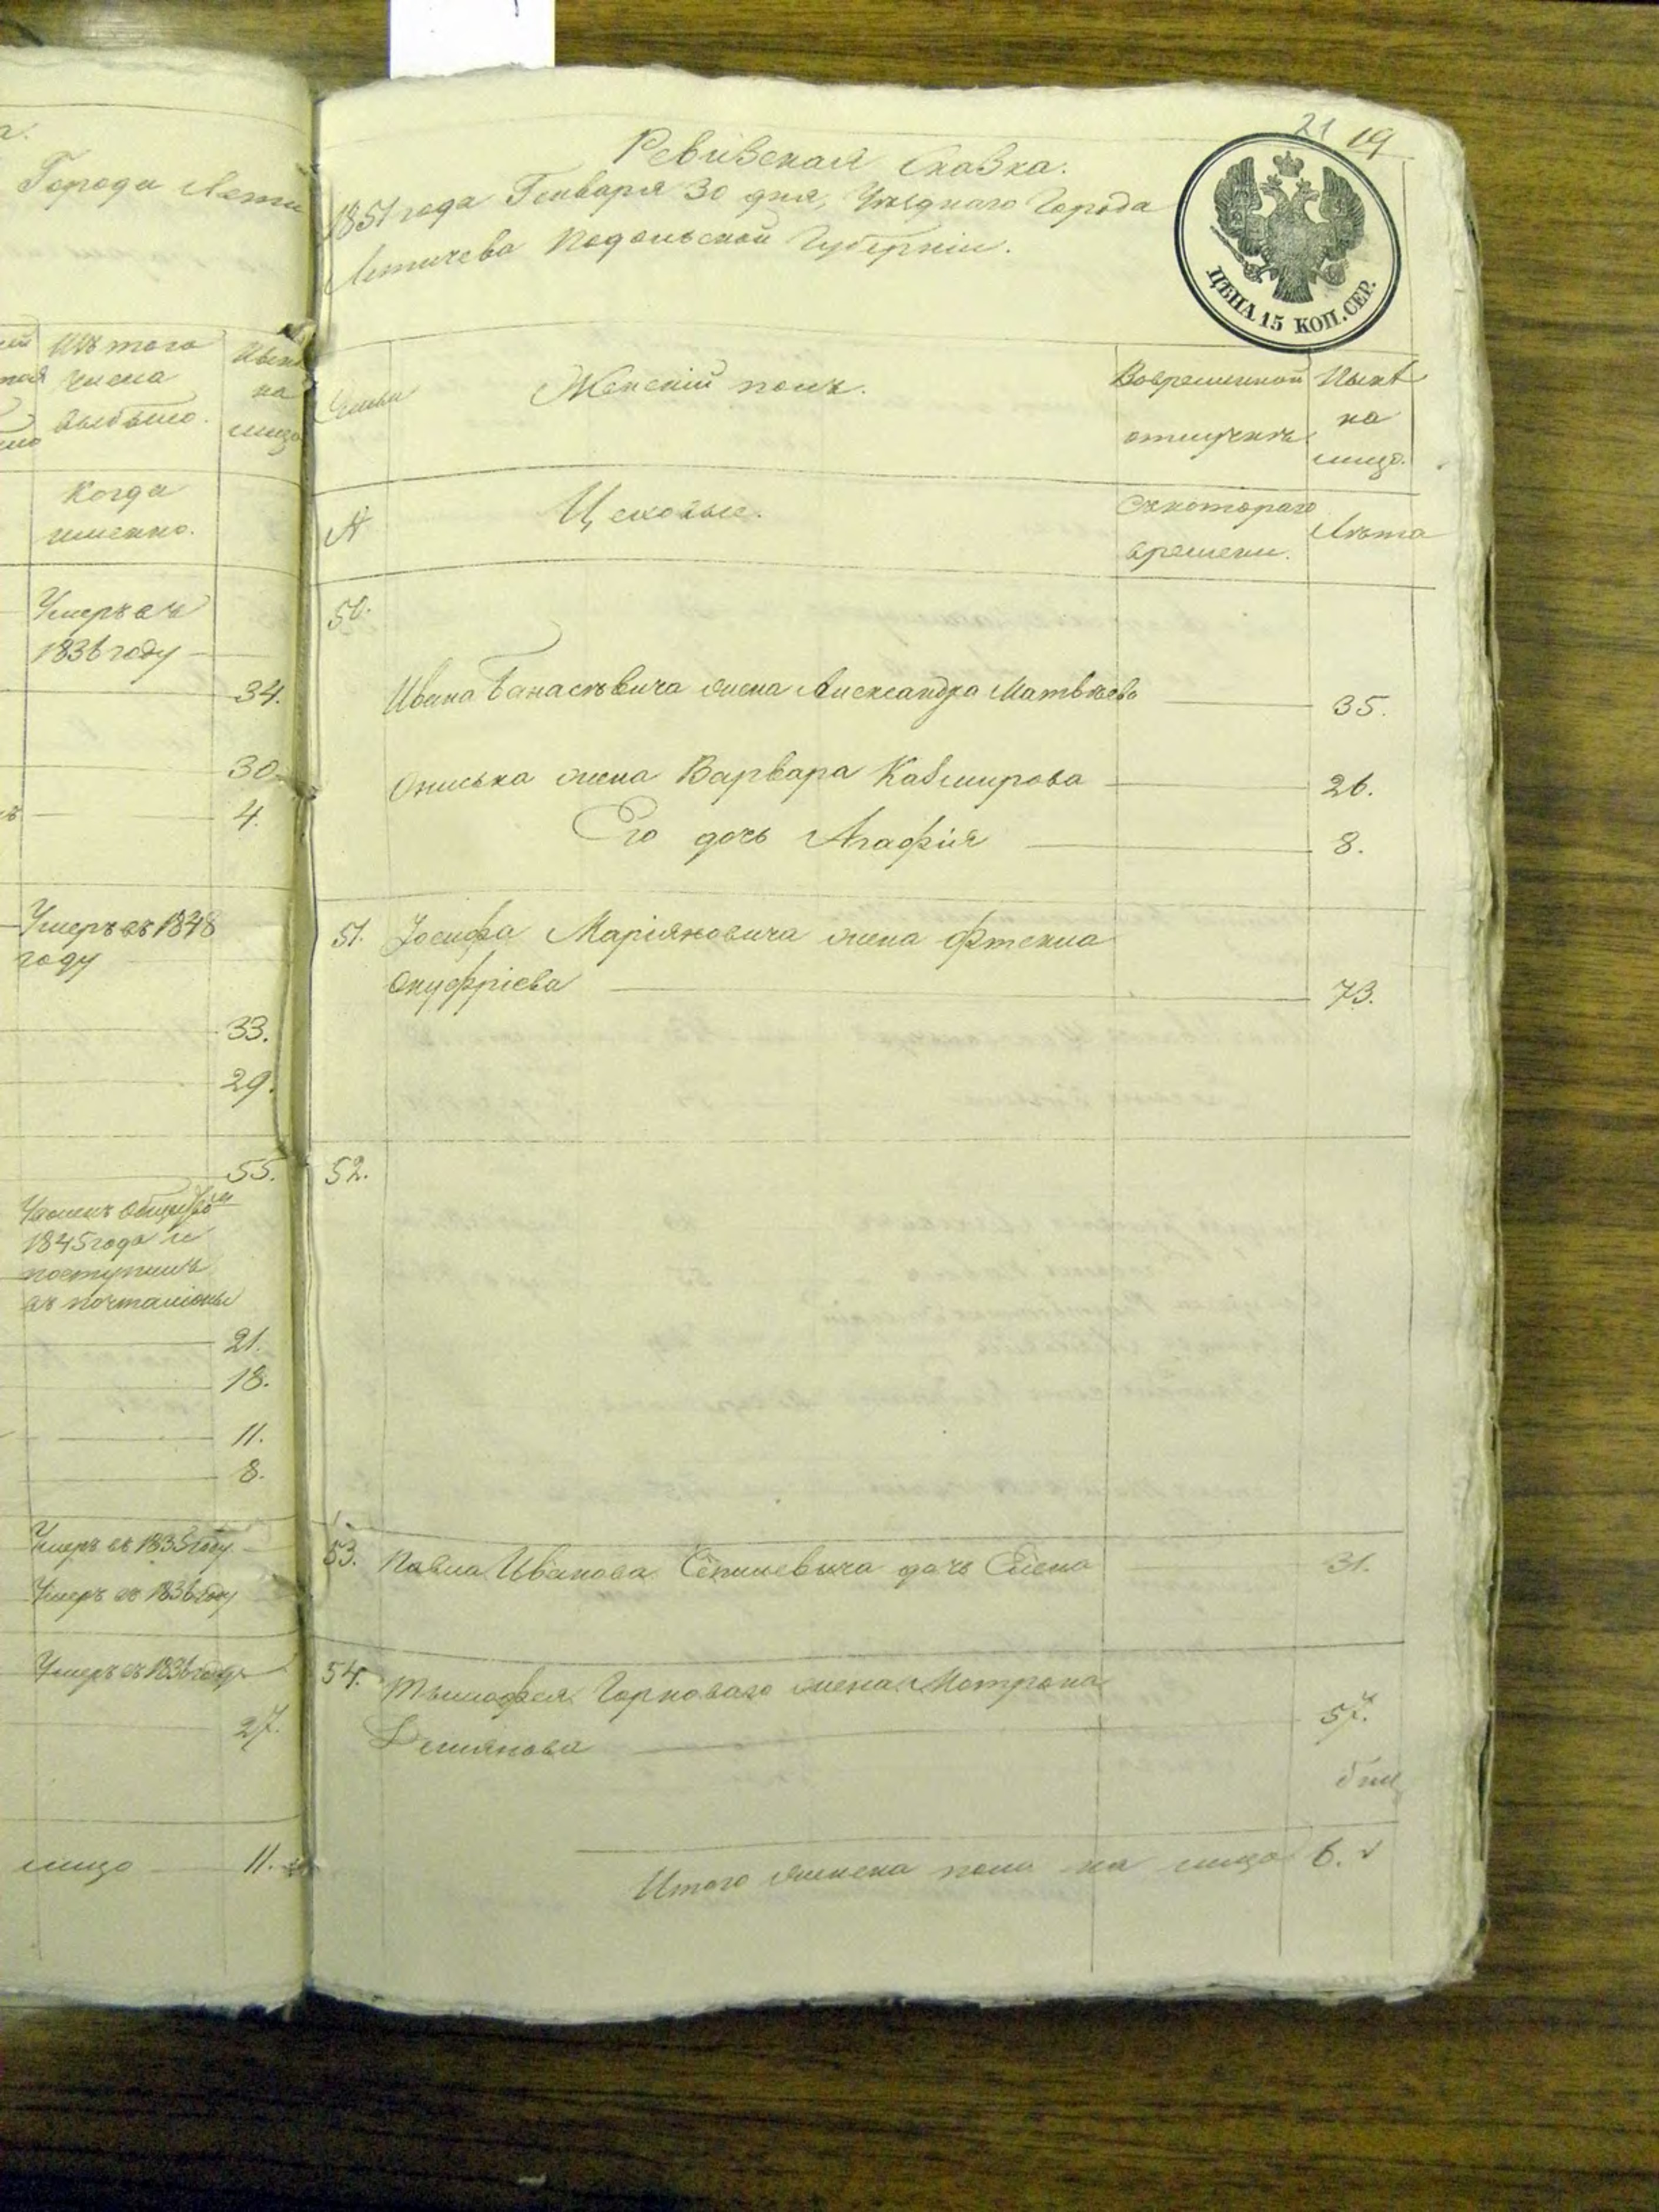 Города Лети
Изъ того
числа
выбыло.
Ныне
на
лицо
Когда
именно.
Умеръ въ
1836 году
34.
30
4.
Умеръ въ 1848
году
33.
29.
55.
1845 года и
поступилъ
въ почталіоны
21.
18.
11.
8.
Умеръ въ 1835 году
Умеръ въ 1836 году
Умеръ въ 1836 году
27.
лицо 11.
21 19
Ревизская Сказка.
1851 года Генваря 30 дня, Уезднаго Города
Летичева Подольской Губерніи.
ЦѢНА 15 КОП. СЕР.
Семьи
Женскій полъ.
Вовременной
отлучкѣ
Нынѣ
на
лицо.
№
Цеховые.
Съкотораго
времени.
Лѣта
50.
Ивана Банасевича жена Александра Матвѣева 35.
Ониська жена Варвара Казимирова 26.
Его дочь Агафія 8.
51. Іосифа Маріяновича жена Фтекла
Онуфріева 73.
52.
53. Павла Иванова дочь Елена 31.
54. Тымофея Горноваго жена Мотрона
Демянова 57.
Итого женска пола на лицо 6.